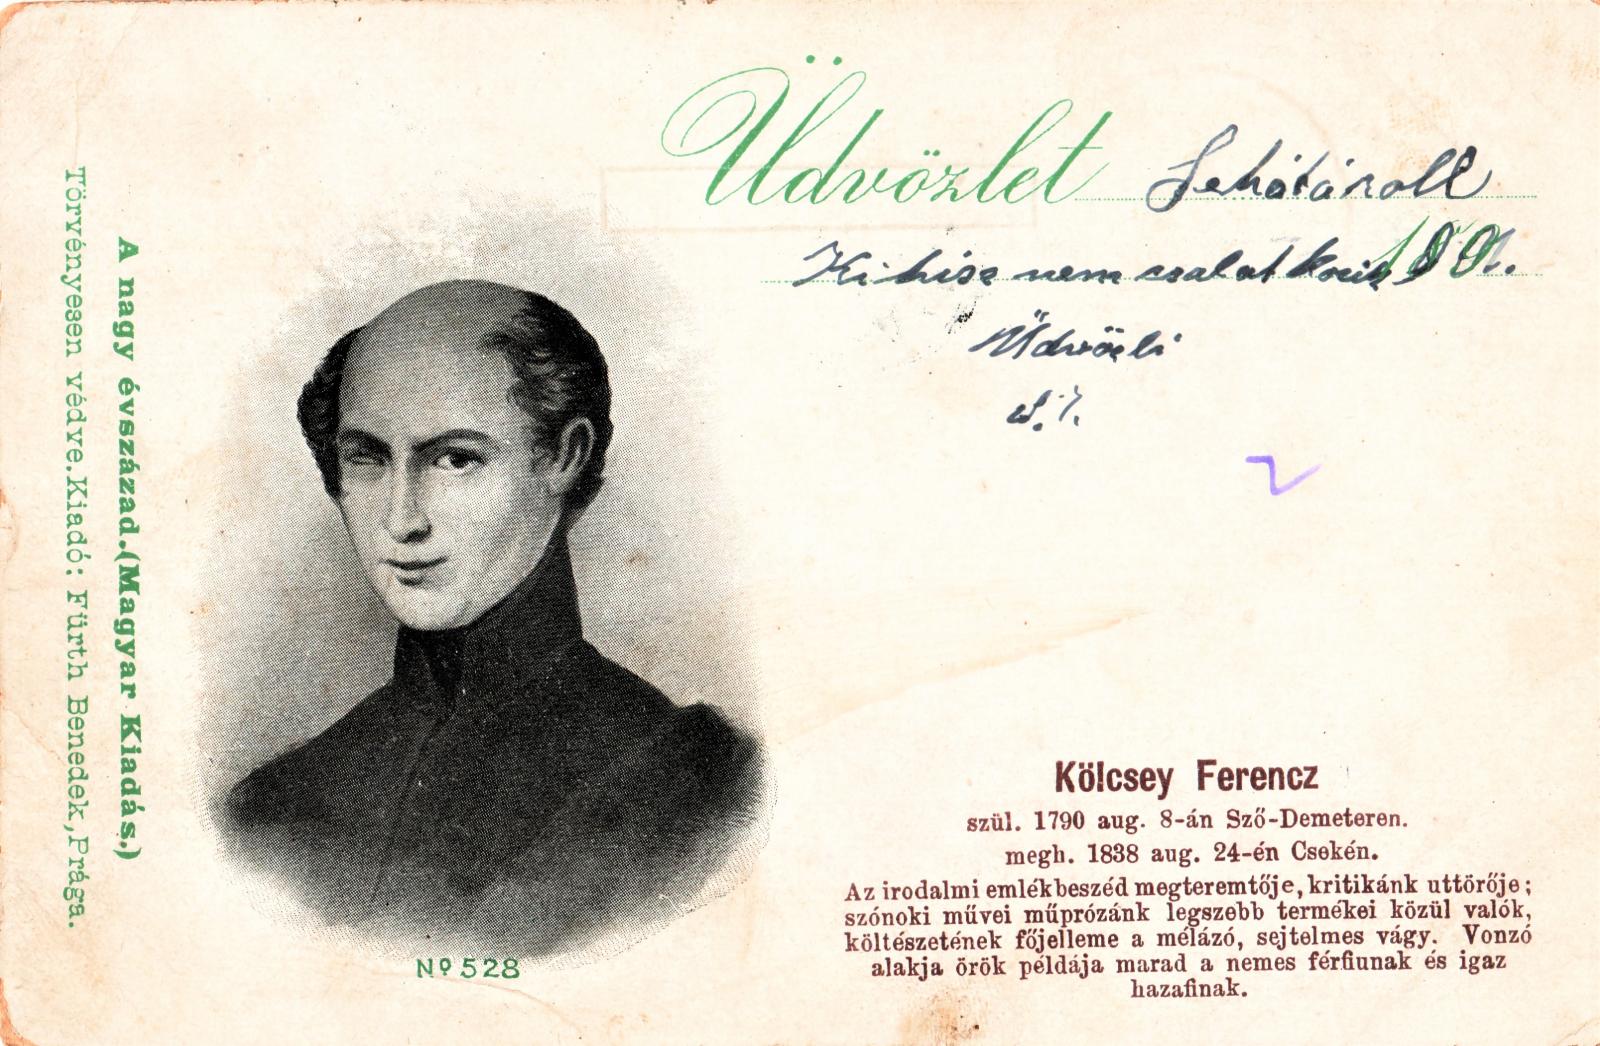 Üdvözlet
Ki hisz nem csalatkozik
Üdvözli
A nagy évszázad.(Magyar Kiadás.)
Törvényesen védve.Kiadó: Fürth Benedek,Prága.
Nº 528
Kölcsey Ferencz
szül. 1790 aug. 8-án Sző-Demeteren.
megh. 1838 aug. 24-én Csekén.
Az irodalmi emlékbeszéd megteremtője, kritikánk uttörője;
szónoki művei műprózánk legszebb termékei közül valók,
költészetének főjelleme a mélázó, sejtelmes vágy. Vonzó
alakja örök példája marad a nemes férfiunak és igaz
hazafinak.